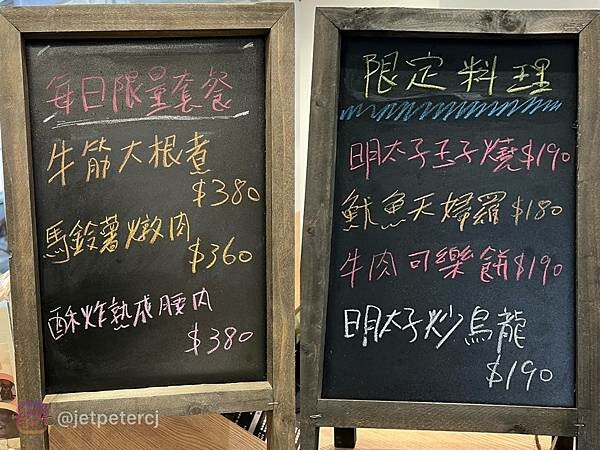 每日限量套餐
牛筋大根煮
$380
馬鈴薯燉肉
$360
酥炸熟成腰肉
$380
限定料理
明太子玉子燒$190
魷魚天婦羅$180
牛肉可樂餅$190
明太子炒烏龍
$190
@jetpetercj